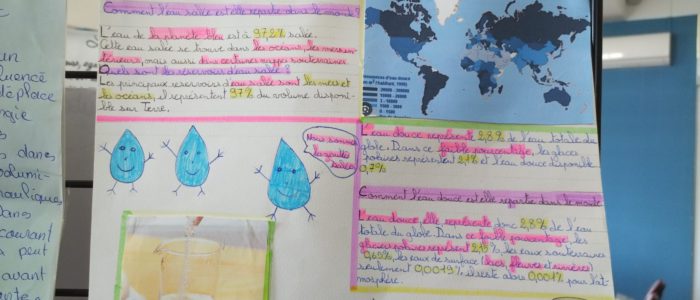 Comment l'eau salée est-elle répartie dans le monde?
L'eau de la planète bleu est à 97,2% salée.
Cette eau salée se trouve dans les océans, les mers in-
térieures, mais aussi dans certaines nappes souterraines.
Quels sont les réservoirs d'eau salée?
Les principaux réservoirs d'eau salée sont les mers et
les océans, il représentent 97% du volume disponi-
ble sur Terre.
Nous sommes
les gouttes
salées
L'eau douce représente 2,8% de l'eau totale du
globe. Dans ce faible pourcentage, les glaces
polaires représentent 2,1% et l'eau douce disponible
0,7%
Comment l'eau douce est-elle répartie dans le monde
L'eau douce, elle représente donc 2,8% de l'eau
totale du globe. Dans ce faible pourcentage, les
glaces polaires représentent 2,15%, les eaux souterraines
0,63%, les eaux de surface (lacs, fleuves et rivières)
seulement 0,0019%, il reste alors 0,001% pour l'at-
mosphère.
un
déplace
que
dans
Dans
courant
a peut
avant